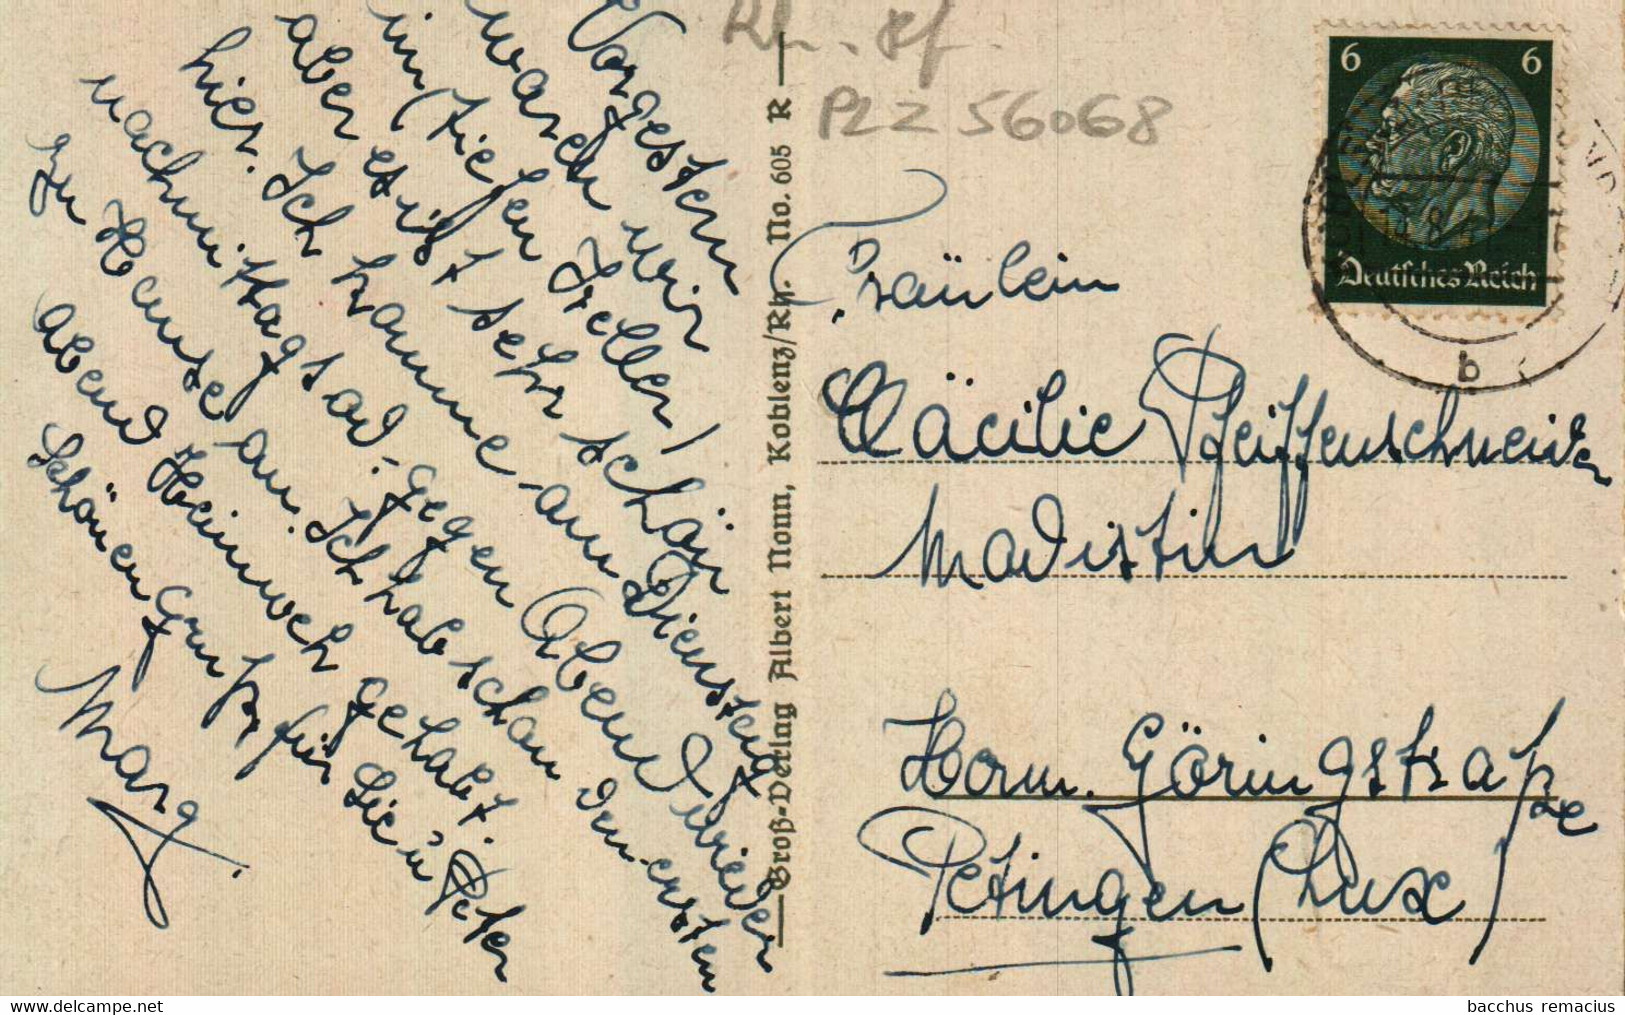 Vorgestern
waren wir
im (tiefen Keller)
aber es ist sehr schön
hier. Ich komme am Dienstag
nachmittags od. gegen Abend wieder
zu Hause an. Ich hab schon den ersten
abend Heimweh gehabt.
Schönen Gruß für Sie u Peter
Marg.
PLZ 56068
Groß-Verlag Albert Monn, Koblenz/Rh. No. 605 R
6 6
Deutsches Reich
b
Fräulein
Cäcilie Pfeiffenschneider
Modistin
Herm. Göringstraße
Petingen (Lux)
bacchus remacius